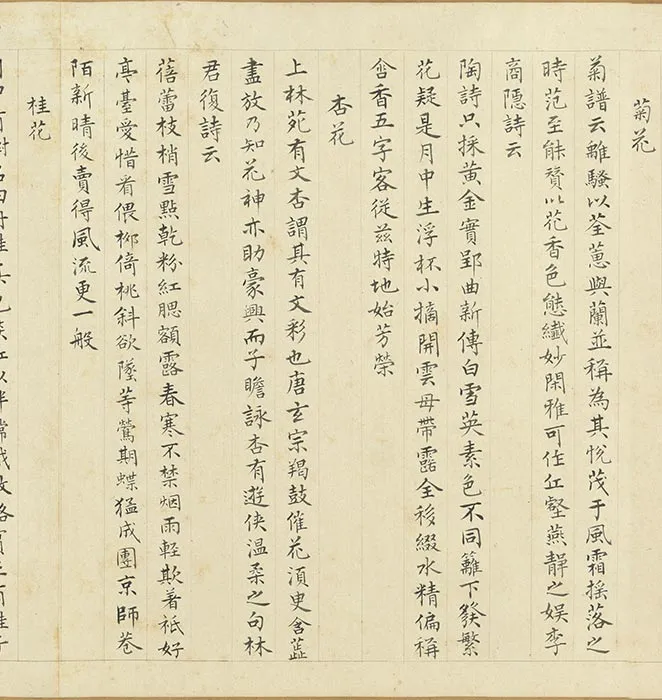 菊花
菊譜云離騷以荃蕙與蘭並稱為其悅茂于風霜搖落之
時范至能贊以花香色態纖妙閑雅可作丘壑燕靜之娛李
商隱詩云
陶詩只採黃金實郢曲新傳白雪英素色不同籬下發繁
花疑是月中生浮杯小摘開雲母帶露全移綴水精偏稱
含香五字客從茲特地始芳榮
杏花
上林苑有文杏謂其有文彩也唐玄宗羯鼓催花湏臾含蘂
盡放乃知花神亦助豪興而子瞻詠杏有遊俠溫柔之句林
君復詩云
蓓蕾枝梢雪點乾粉紅腮額露春寒不禁烟雨輕欺著祇好
亭臺愛惜看偎柳倚桃斜欲墜等鶯期蝶猛成團京師巷
陌新晴後賣得風流更一般
桂花